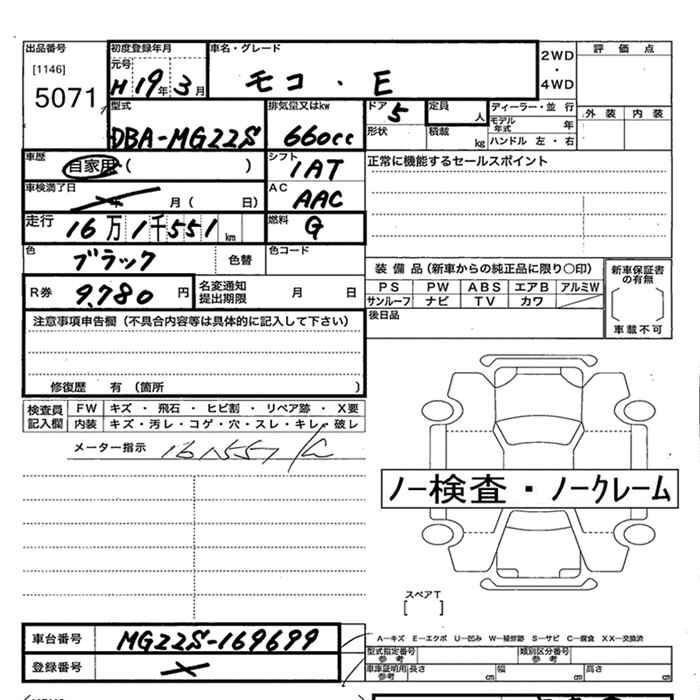 出品番号 初度登録年月 車名・グレード 2WD・4WD 評価点
[1146] 元号
5071 H19年3月 モコ・E
型式 排気量又はkw ドア 5 定員 人 ディーラー・並行 外装 内装
DBA-MG22S 660cc 形状 積載 kg モデル年式 年
ハンドル 左・右
車歴 自家用・( ) シフト 1AT 正常に機能するセールスポイント
車検満了日 年 月 ( 日) AC AAC
走行 16万1千551km 燃料 G
色 ブラック 色替 色コード
装備品(新車からの純正品に限り○印) 新車保証書の有無
R券 9,780円 名変通知提出期限 月 日 PS PW ABS エアB アルミW
サンルーフ ナビ TV カワ [ ]
注意事項申告欄(不具合内容等は具体的に記入して下さい) 後日品 車載不可
修復歴 有 (箇所 )
検査員記入欄 FW キズ・飛石・ヒビ割・リペア跡・X要
内装 キズ・汚レ・コゲ・穴・スレ・キレ・破レ
メーター指示 161557
ノー検査・ノークレーム
スペアT
[ ]
車台番号 MG22S-169699 A-キズ E-エクボ U-凹み W-補修跡 S-サビ C-腐食 XX-交換済
登録番号 型式指定番号 参考 類別区分番号 参考
車庫証明用 参考 長さ cm 幅 cm 高さ cm